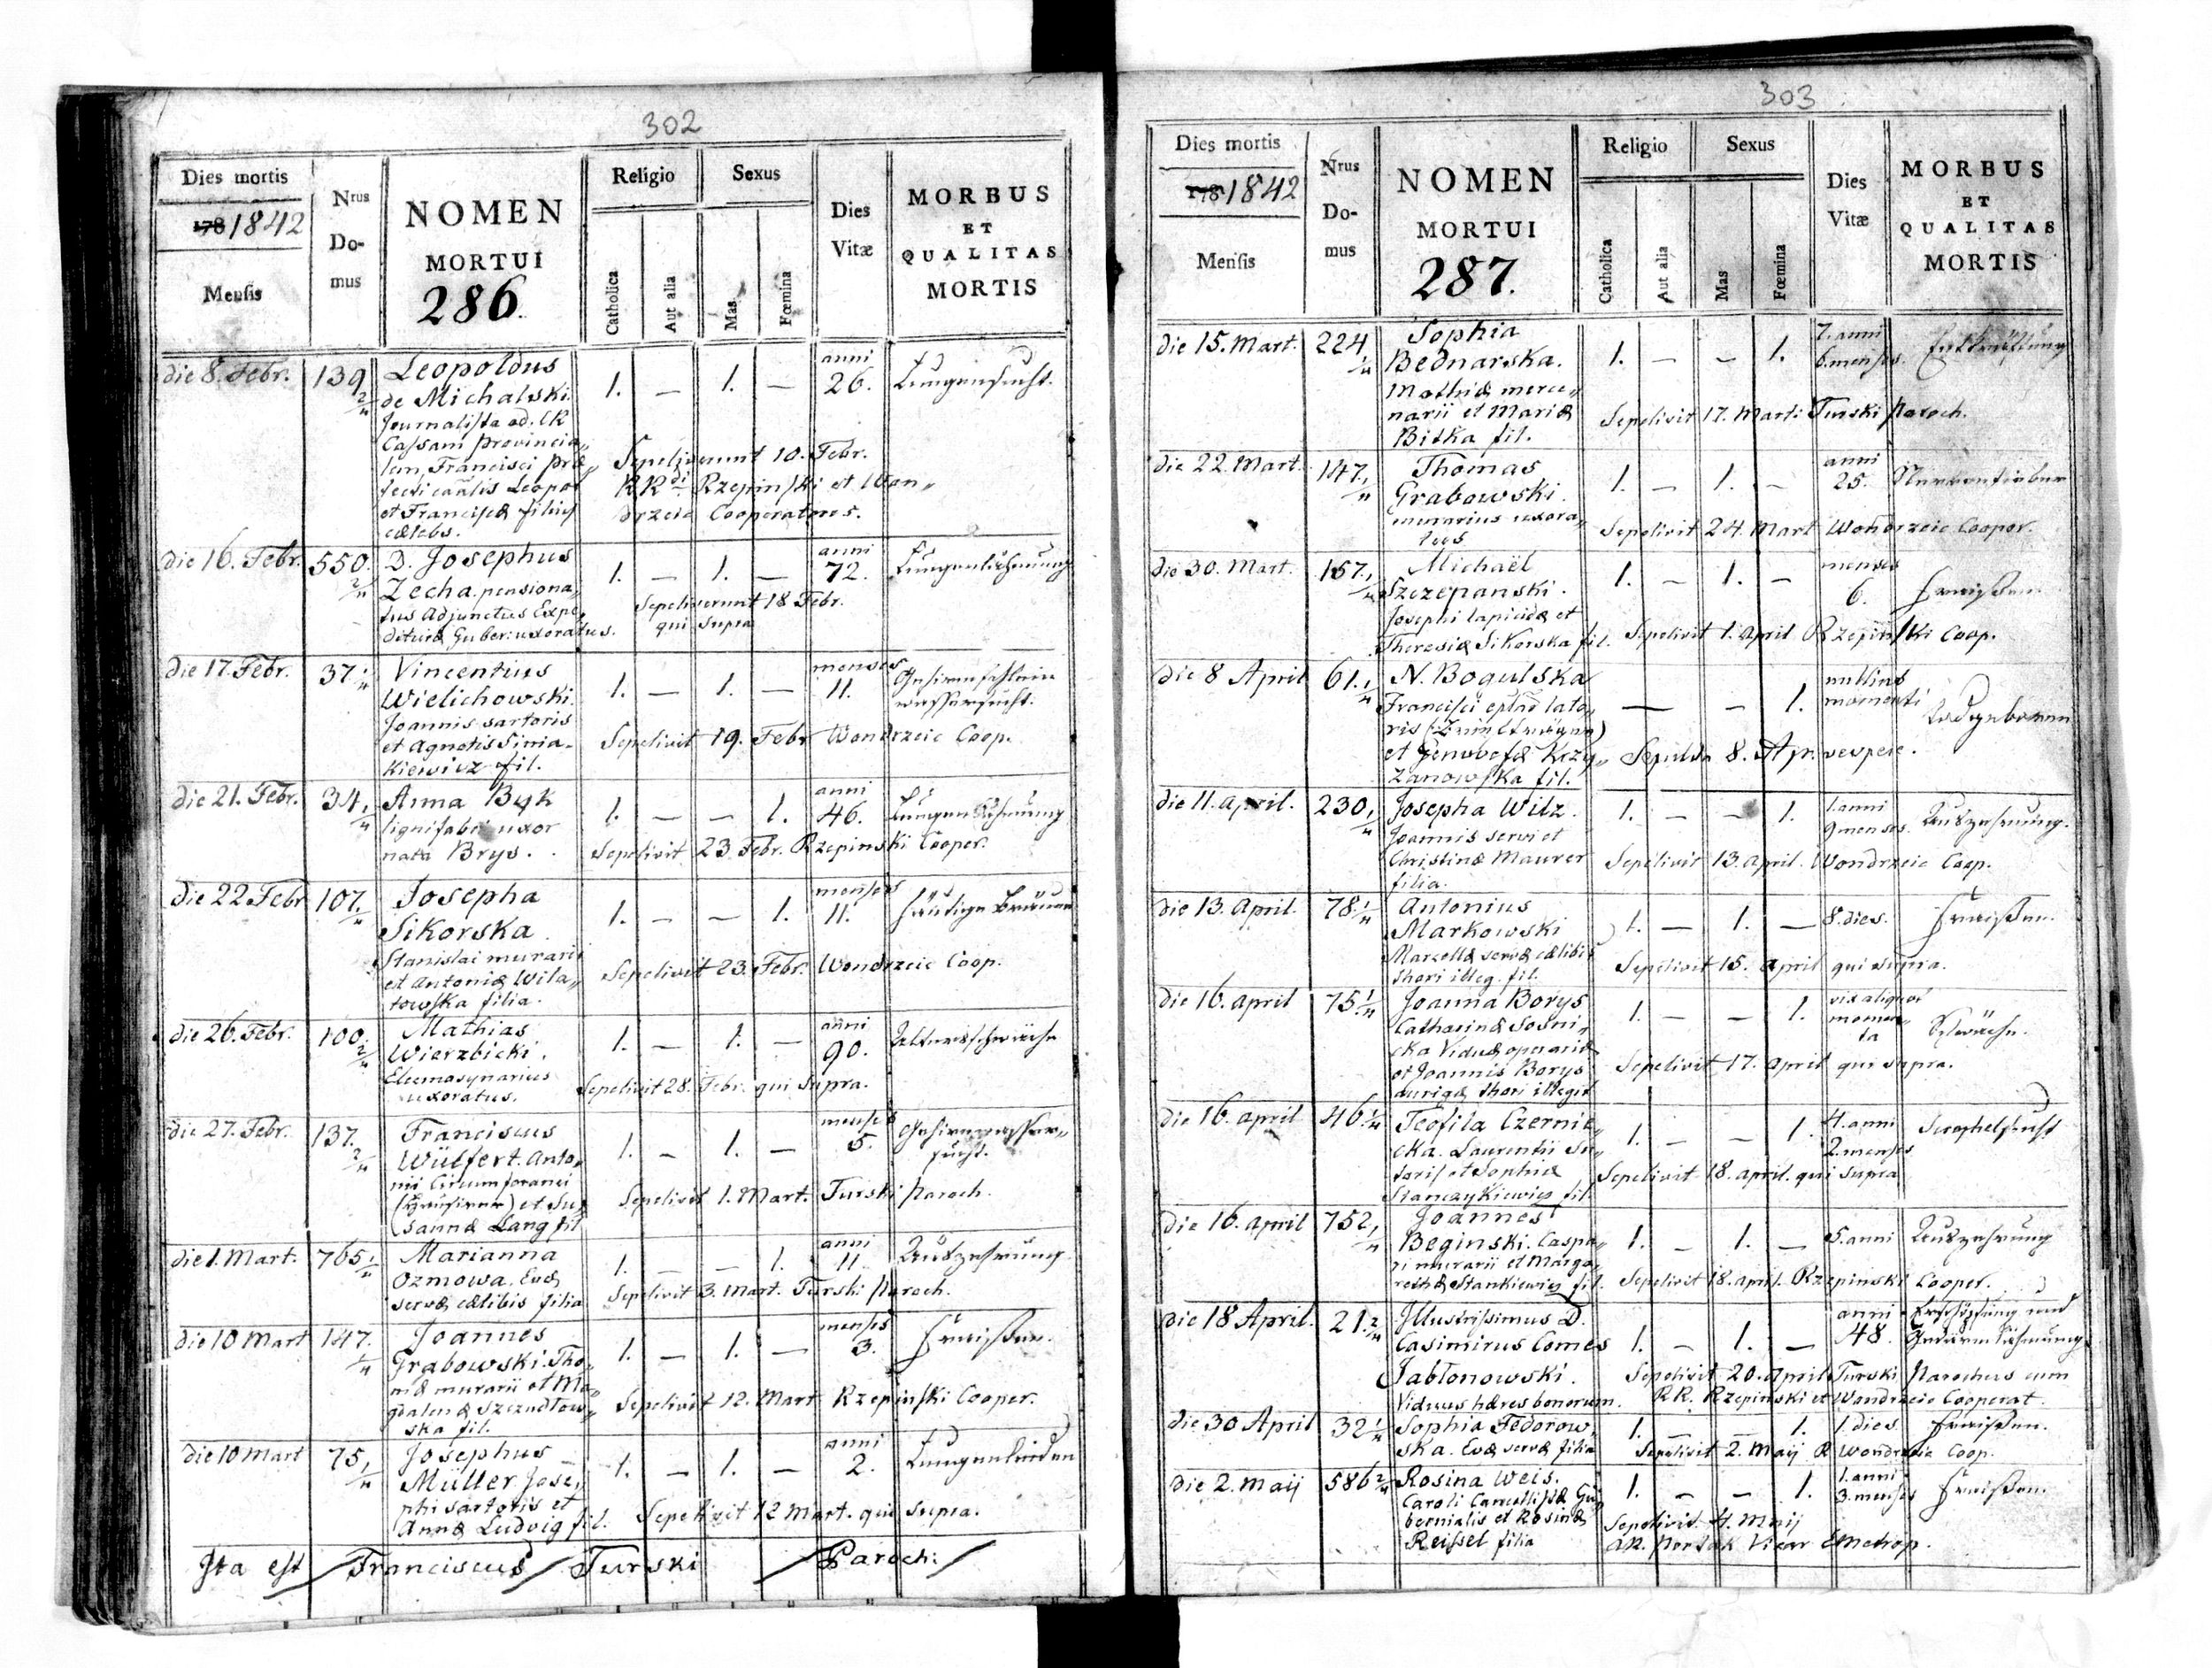 302
Dies mortis
178 1842
Mensis
Nrus Do-mus
NOMEN
MORTUI
286.
Religio
Catholica
Aut alia
Sexus
Mas
Fœmina
Dies Vitæ
MORBUS
ET
QUALITAS
MORTIS
die 8. Febr. 139 2/4 Leopoldus 1. — 1. — anni 26. Lungensucht.
de Michalski
Journalista ad. CR
Cassam provincia„
lem, Francisci præ„ Sepeliverunt 10. Febr.
fecti Leopol RRdi Rzepinski et Won„
et Francisca filius drzeic Cooperatores.
cælebs.
die 16. Febr. 550. 2/4 D. Josephus 1. — 1. — anni 72. Lungenlähmung
Zecha. pensiona„ Sepeliverunt 18 Febr.
tus Adjunctus Expe„ qui supra
diturae Guber: uxoratus.
die 17. Febr. 37 1/4 Vincentius 1. — 1. — menses 11.
Wielichowski. wassersucht.
Joannis sartoris
et Agnetis Sinia- Sepelivit 19. Febr Wondrzeic Coop.
kiewicz fil.
die 21. Febr. 34 1/4 Anna Byk 1. — — 1. anni 46. Lungenlähmung
lignifabri uxor
nata Brys. Sepelivit 23. Febr. Rzepinski Cooper.
die 22 Febr 107. 1/4 Josepha 1. — — 1. menses 11. häutige Bräune
Sikorska.
Stanislai murarii
et Antoniæ Wila„ Sepelivit 23. Febr. Wondrzeic Coop.
towska filia.
die 26. Febr. 100. 2/4 Mathias 1. — 1. — anni 90. Altersschwäche
Wierzbicki.
Eleemosynarius Sepelivit 28. Febr. qui supra.
uxoratus.
die 27. Febr. 137. 2/4 Franciscus 1. — 1. — menses 5. Gehirnwasser„
Wülfert. Anto„ sucht.
nii Circumforanei
(Hausirer) et Su„ Sepelivit 1. Mart. Turski Paroch.
sannæ Lang fil
die 1. Mart. 765 1/4 Marianna 1. — — 1. anni 11. Auszehrung
Ozmowa. Evæ
servæ cælibis filia Sepelivit 3. Mart. Turski Paroch.
die 10 Mart 147. 1/4 Joannes 1. — 1. — menses 3. Fraißen.
Grabowski. Tho„
mæ murarii et Ma„
gdalenæ Szczudłow„ Sepelivit 12. Mart Rzepinski Cooper.
ska fil.
die 10 Mart 75. 1/4 Josephus 1. — 1. — anni 2. Lungenleiden
Müller Jose„
phi sartoris et
Annæ Ludvig fil. Sepelivit 12 Mart. qui supra.
Ita est Franciscus Turski Paroch:
303
Dies mortis
178 1842
Mensis
Nrus Do-mus
NOMEN
MORTUI
287.
Religio
Catholica
Aut alia
Sexus
Mas
Fœmina
Dies Vitæ
MORBUS
ET
QUALITAS
MORTIS
die 15. Mart. 224 1/4 Sophia 1. — — 1. 7. anni 6. menses. Entkräftung
Bednarska.
Mathiæ merce„
narii et Mariæ Sepelivit 17. Marti Turski Paroch.
Bitka fil.
die 22. Mart. 147. 1/4 Thomas 1. — 1. — anni 25. Nervenfieber
Grabowski.
murarius uxora„ Sepelivit 24. Mart Wondrzeic Cooper.
tus
die 30. Mart. 157. 1/4 Michaël 1. — 1. — menses 6. Fraißen.
Szczepanski.
Josephi lapicidæ et
Theresiæ Sikorska fil. Sepelivit 1. April Rzepinski Coop.
die 8 April 61. 1/4 N. Bogulska — — 1. nullius momenti Todgeboren
Francisci lato„
ris
et Genovefæ Krzy„ Sepulta 8. Apr. vespere.
żanowska fil.
die 11. April. 230 1/4 Josepha Wilz. 1. — — 1. 1. anni 9 menses. Auszehrung.
Joannis servi et
Christinæ Maurer Sepelivit 13. April. Wondrzeic Coop.
filia.
die 13. April. 78 1/4 Antonius 1. — 1. — 8. dies. Fraißen.
Markowski
Marcellæ servæ cælibis Sepelivit 15. April qui supra.
thori illeg. fil.
die 16. April 75 1/4 Joanna Borys 1. — — 1. vix aliquot momen„ta Schwäche.
Catharinæ Sosni„
cka Viduæ operariæ
et Joannis Borys Sepelivit 17. April qui supra.
aurigæ thori illegit
die 16. April 46 1/4 Teofila Czernie„ 1. — — 1. 4. anni 2. menses Scrophelsucht
cka. Laurentii su„
toris et Sophiæ Sepelivit 18. April. qui supra
Stanczykiewicz fil.
die 16. April 752 1/4 Joannes 1. — 1. — 5. anni Auszehrung
Beginski. Caspa„
ri murarii et Marga„
rethæ Stankiewicz fil. Sepelivit 18. April. Rzepinski Cooper.
die 18 April. 21. 2/4 Illustrissimus D. 1. — 1. — anni 48. Erschöpfung und
Casimirus Comes Gedärmlähmung.
Jabłonowski. Sepelivit 20. April Turski Parochus cum
Viduus hæres bonorum. RR. Rzepinski et Wondrzeic Cooperat.
die 30 April 32 1/4 Sophia Fedorow„ 1. — — 1. 1. dies. Fraißen.
ska. Evæ servæ filia Sepelivit 2. Maij R Wondrzeic Coop.
die 2. Maij 586 2/4 Rosina Weis. 1. — — 1. 1. anni 3. menses Fraißen.
Caroli Cancellistæ Gu„
bernialis et Rosinæ Sepelivit. 4. Maij
Reissel filia Vicar Emetrop.